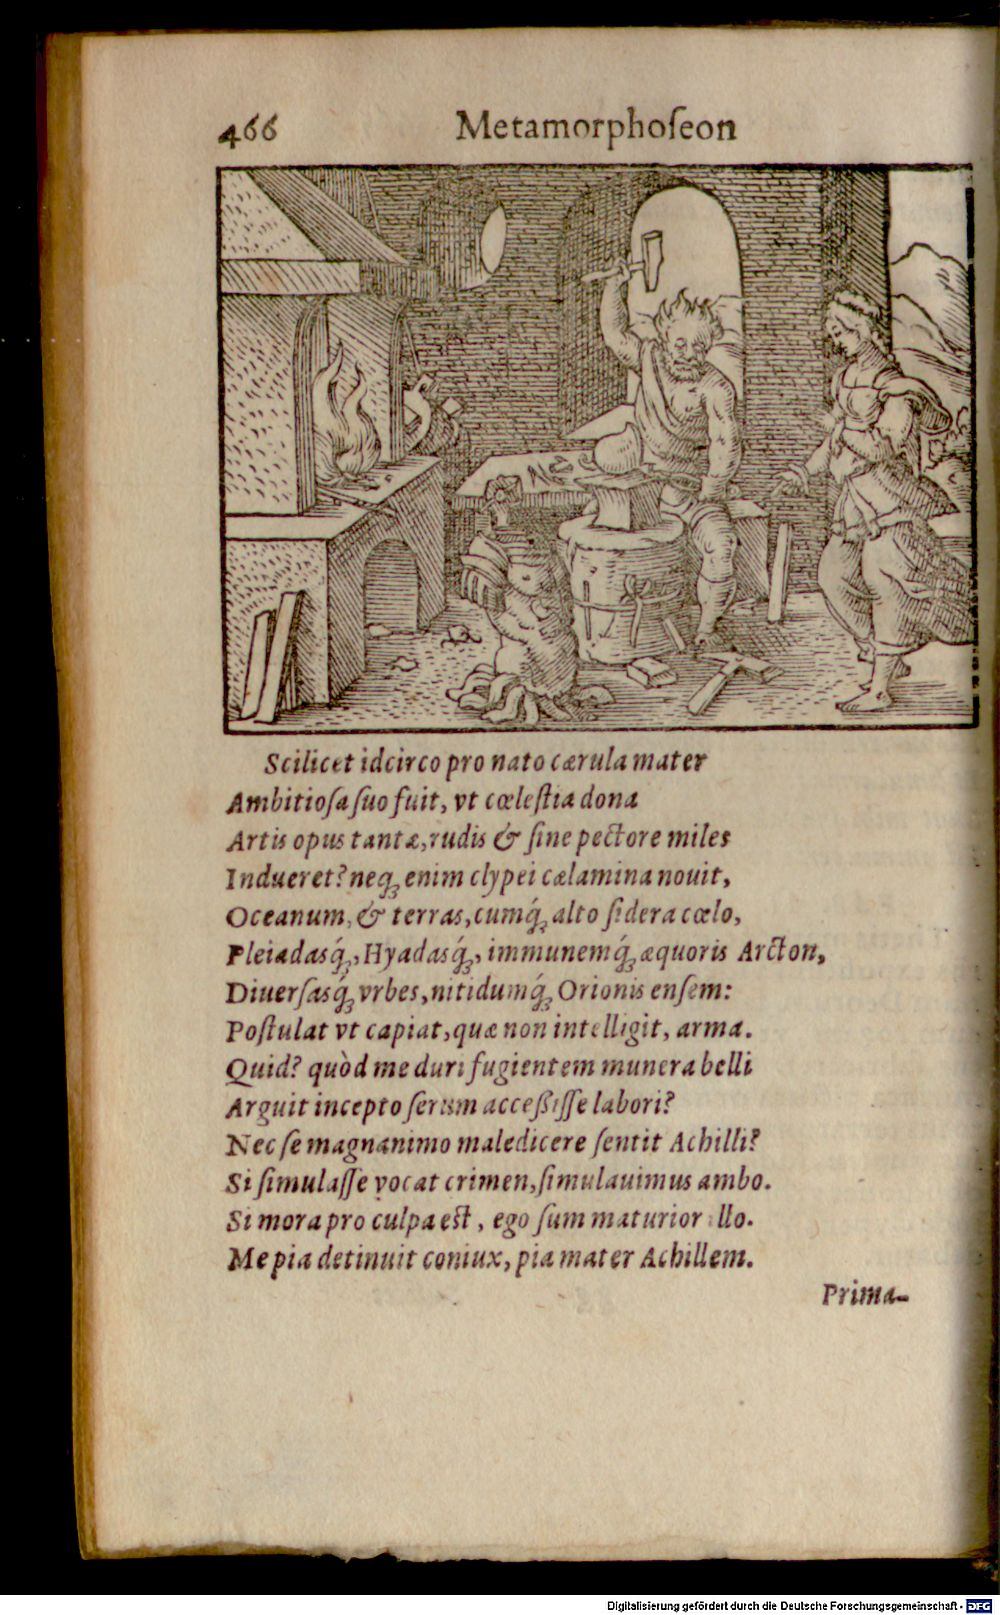 466 Metamorphoſeon
Scilicet idcirco pro nato cærula mater
Ambitioſa ſuo fuit, vt cœleſtia dona
Artis opus tantæ, rudis & ſine pectore miles
Indueret? neq́; enim clypei cælamina nouit,
Oceanum, & terras, cumq́; alto ſidera cœlo,
Pleiadasq́;, Hyadasq́;, immunemq́; æquoris Arcton,
Diuerſasq́; vrbes, nitidumq́; Orionis enſem:
Poſtulat vt capiat, quæ non intelligit, arma.
Quid? quòd me duri fugientem munera belli
Arguit incepto ſerum acceßiſſe labori?
Nec ſe magnanimo maledicere ſentit Achilli?
Si ſimulaſſe vocat crimen, ſimulauimus ambo.
Si mora pro culpa eſt, ego ſum maturior illo.
Me pia detinuit coniux, pia mater Achillem.
Prima-
Digitalisierung gefördert durch die Deutsche Forschungsgemeinschaft - DFG